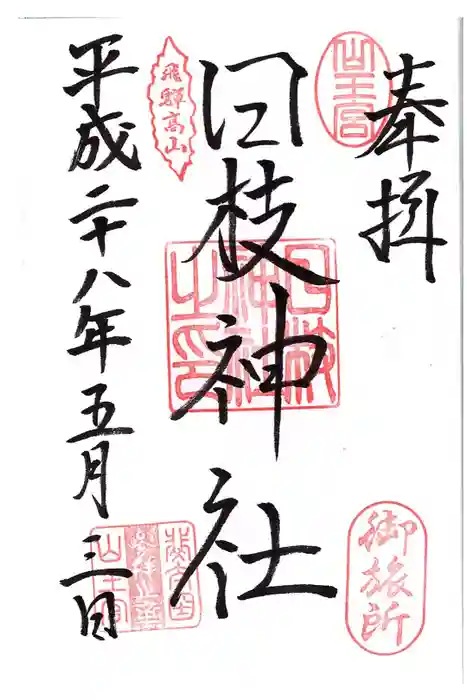 奉拝
山王宮
日枝神社
日枝神社之印
飛騨高山
平成二十八年五月三日
御旅所